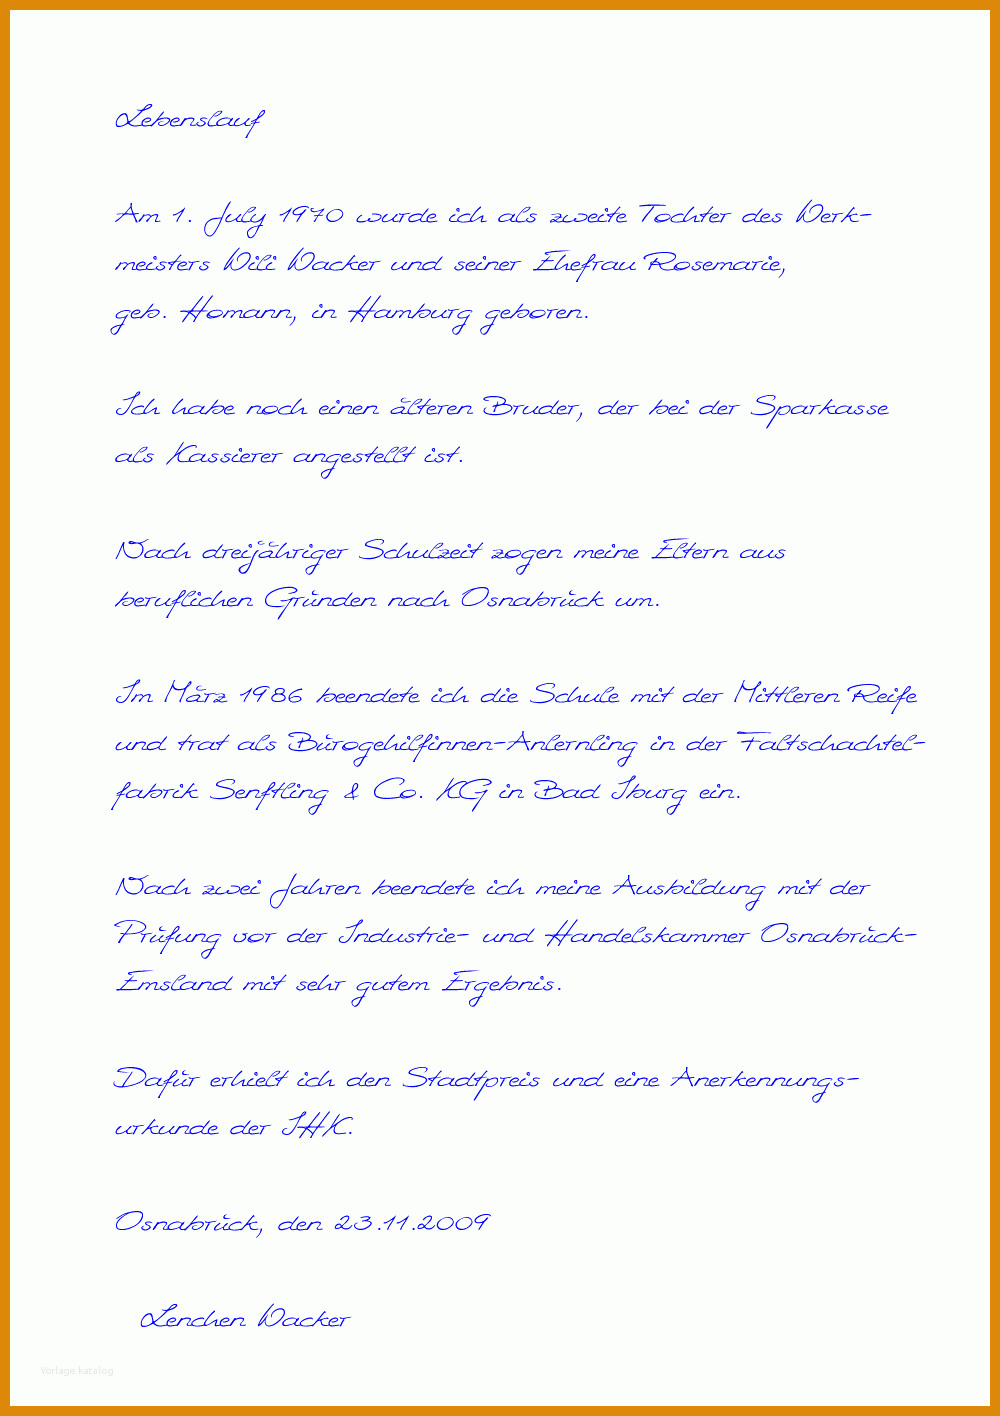 Lebenslauf
Am 1. July 1970 wurde ich als zweite Tochter des Werk-
meisters Wili Wacker und seiner Ehefrau Rosemarie,
geb. Homann, in Hamburg geboren.
Ich habe noch einen älteren Bruder, der bei der Sparkasse
als Kassierer angestellt ist.
Nach dreijähriger Schulzeit zogen meine Eltern aus
beruflichen Gründen nach Osnabrück um.
Im März 1986 beendete ich die Schule mit der Mittleren Reife
und trat als Bürogehilfinnen-Anlernling in der Faltschachtel-
fabrik Senftling & Co. KG in Bad Iburg ein.
Nach zwei Jahren beendete ich meine Ausbildung mit der
Prüfung vor der Industrie- und Handelskammer Osnabrück-
Emsland mit sehr gutem Ergebnis.
Dafür erhielt ich den Stadtpreis und eine Anerkennungs-
urkunde der IHK.
Osnabrück, den 23.11.2009
Lenchen Wacker
Vorlage katalog